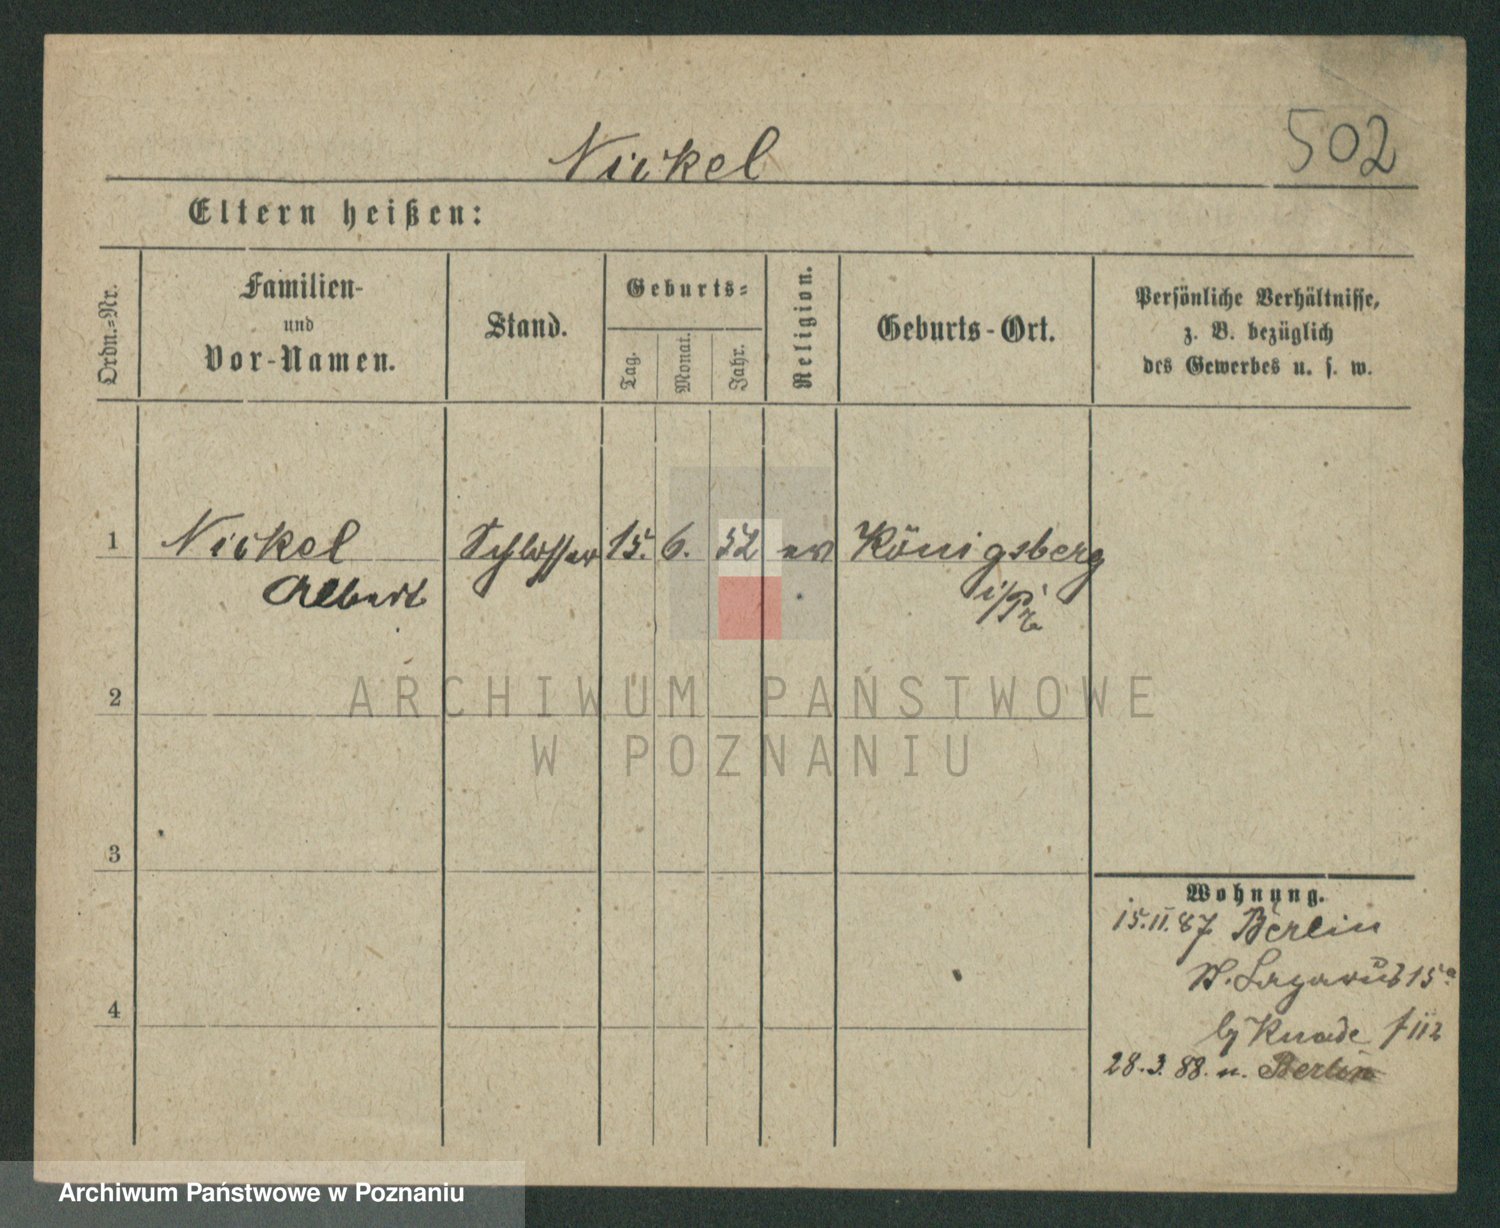 Nickel
502
Eltern heißen:
Ordn.-Nr.
Familien-
und
Vor-Namen.
Stand.
Geburts-
Tag.
Monat.
Jahr.
Religion.
Geburts-Ort.
Persönliche Verhältnisse,
z. B. bezüglich
des Gewerbes u. s. w.
1 Nickel Schlosser 15. 6. 52 ev Königsberg
Albert i/Pr
2
ARCHIWUM PAŃSTWOWE
W POZNANIU
3
Wohnung.
15.11.87 Berlin
St. Lazarus 15a
by Knade
4
28.3.88. n. Berlin
Archiwum Państwowe w Poznaniu